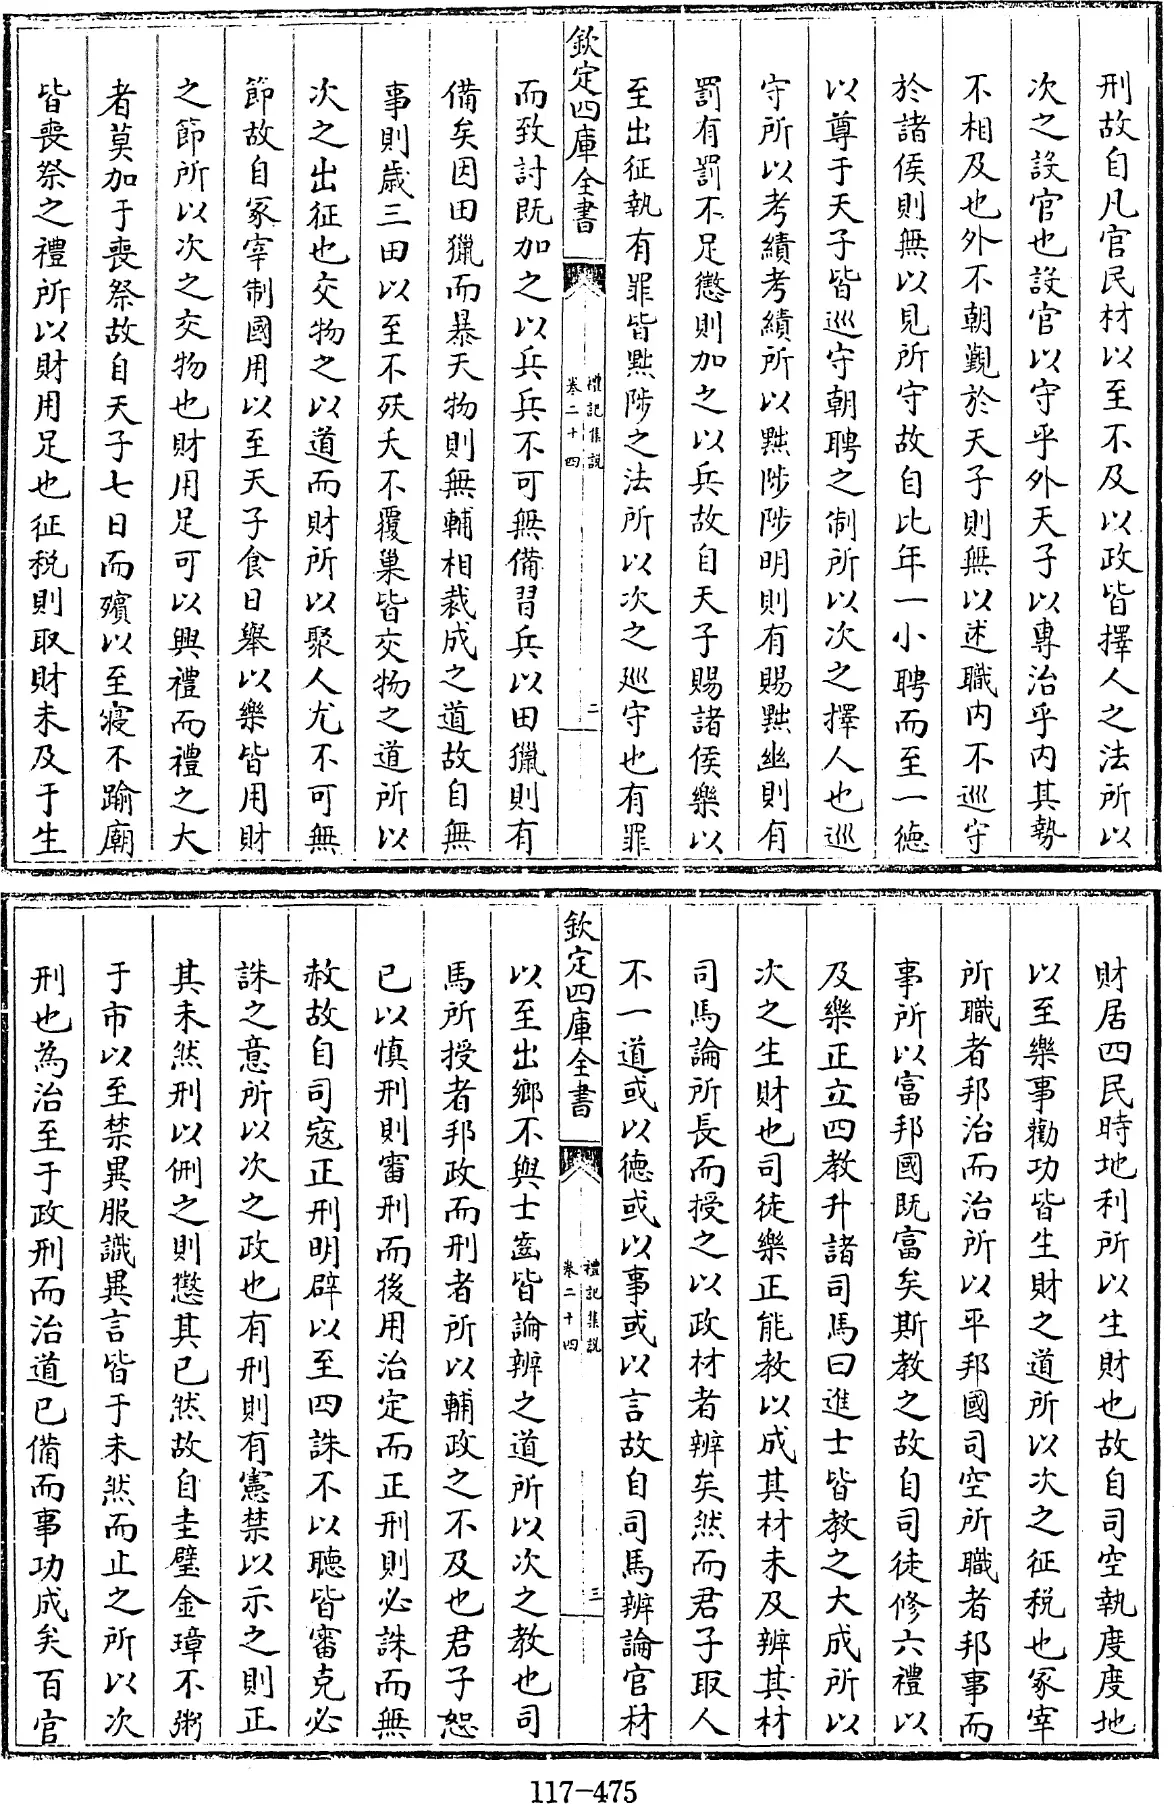 刑故自凡官民材以至不及以政皆擇人之法所以
次之設官也設官以守乎外天子以專治乎内其勢
不相及也外不朝覲於天子則無以述職内不巡守
於諸侯則無以見所守故自比年一小聘而至一德
以尊于天子皆巡守朝聘之制所以次之擇人也巡
守所以考績考績所以黜陟陟明則有賜黜幽則有
罰有罰不足懲則加之以兵故自天子賜諸侯樂以
至出征執有罪皆黜陟之法所以次之巡守也有罪
欽定四庫全書
禮記集說
卷二十四
二
而致討既加之以兵兵不可無備習兵以田獵則有
備矣因田獵而暴天物則無輔相裁成之道故自無
事則歲三田以至不殀夭不覆巢皆交物之道所以
次之出征也交物之以道而財所以聚人尤不可無
節故自冢宰制國用以至天子食日舉以樂皆用財
之節所以次之交物也財用足可以興禮而禮之大
者莫加于喪祭故自天子七日而殯以至寢不踰廟
皆喪祭之禮所以財用足也征稅則取財未及于生
財居四民時地利所以生財也故自司空執度度地
以至樂事勸功皆生財之道所以次之征稅也冢宰
所職者邦治而治所以平邦國司空所職者邦事而
事所以富邦國既富矣斯教之故自司徒修六禮以
及樂正立四教升諸司馬曰進士皆教之大成所以
次之生財也司徒樂正能教以成其材未及辨其材
司馬論所長而授之以政材者辨矣然而君子取人
不一道或以德或以事或以言故自司馬辨論官材
欽定四庫全書
禮記集說
卷二十四
三
以至出鄉不與士齒皆論辨之道所以次之教也司
馬所授者邦政而刑者所以輔政之不及也君子恕
已以慎刑則審刑而後用治定而正刑則必誅而無
赦故自司寇正刑明辟以至四誅不以聽皆審克必
誅之意所以次之政也有刑則有憲禁以示之則正
其未然刑以例之則懲其已然故自圭璧金璋不粥
于市以至禁異服識異言皆于未然而止之所以次
刑也為治至于政刑而治道已備而事功成矣百官
117-475